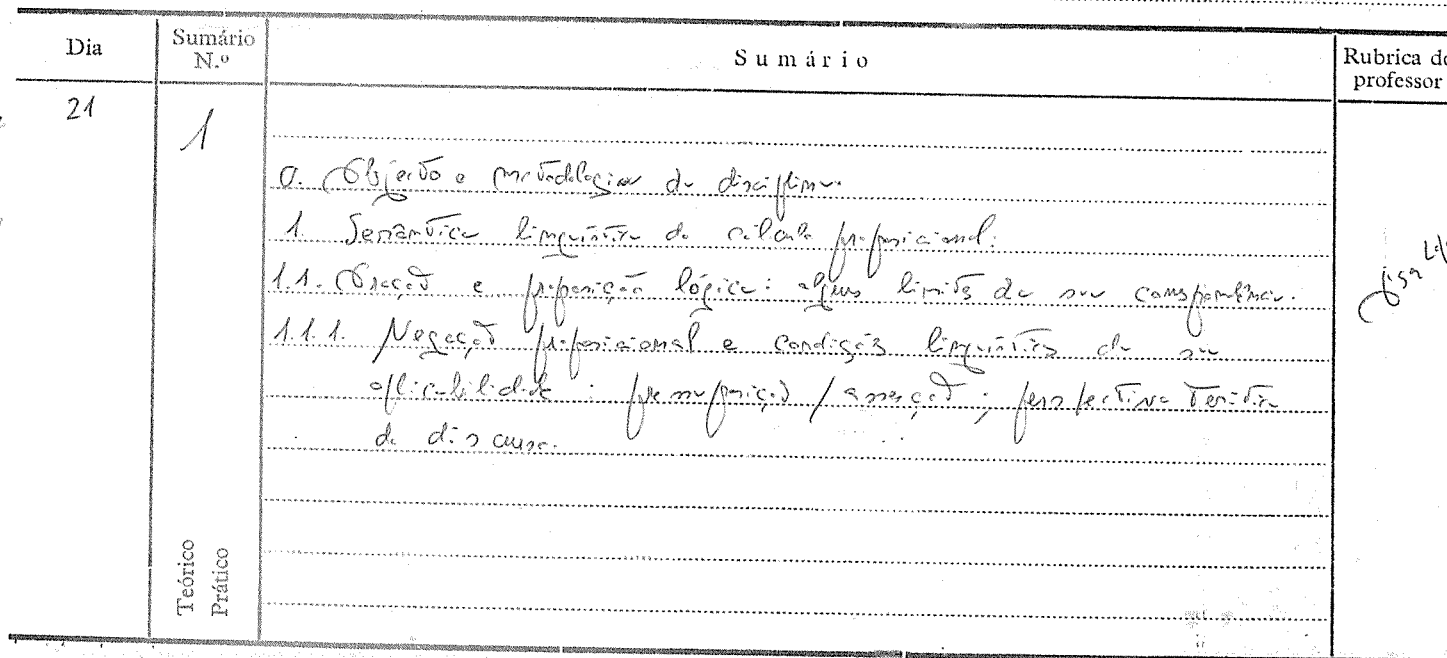 Dia
Sumário N.º
Sumário
Rubrica do professor
21
1
0. Objecto e metodologia da disciplina.
1. Semântica linguística do cálculo proposicional.
1.1. Oração e proposição lógica: alguns limites da sua correspondência.
1.1.1. Negação proposicional e condições linguísticas da sua
aplicabilidade: pressuposição / asserção; perspectiva temática
do discurso.
Teórico
Prático